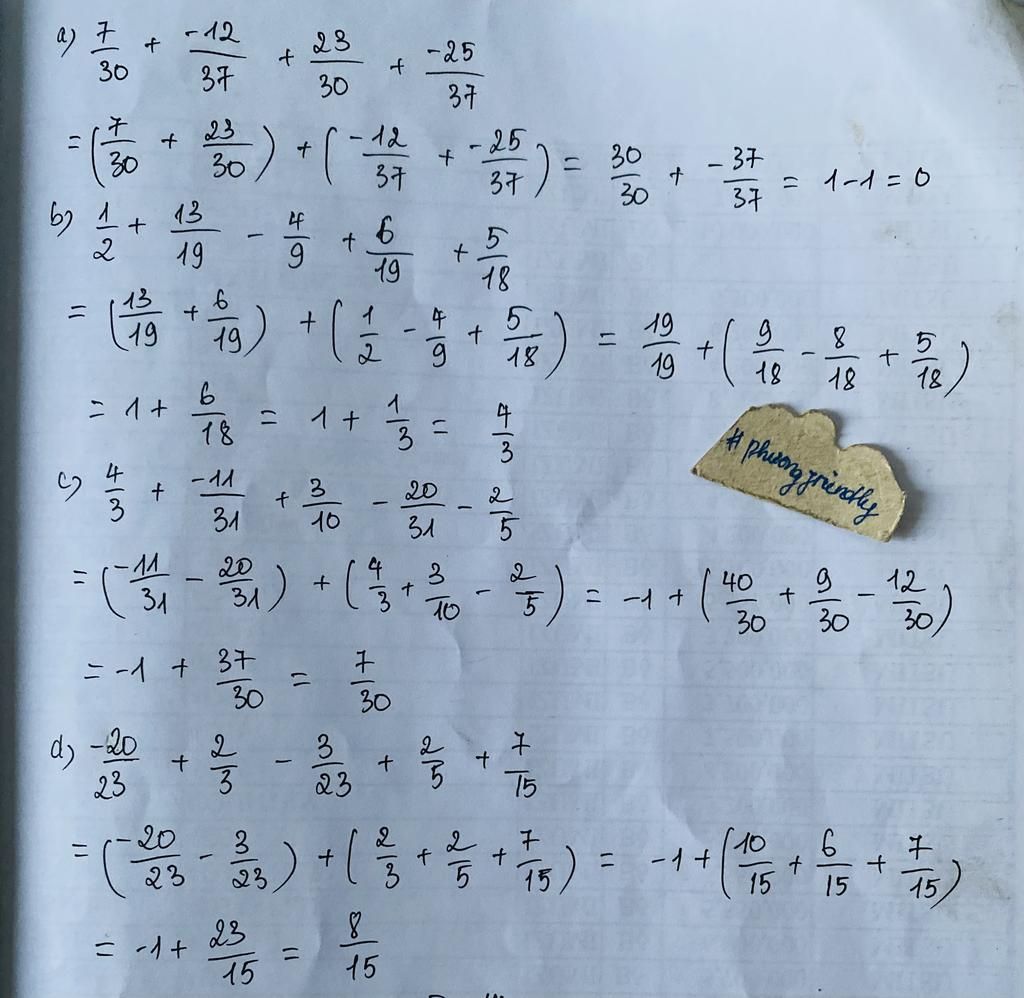 a) 7/30 + -12/37 + 23/30 + -25/37
= (7/30 + 23/30) + (-12/37 + -25/37) = 30/30 + -37/37 = 1-1 = 0
b) 1/2 + 13/19 - 4/9 + 6/19 + 5/18
= (13/19 + 6/19) + (1/2 - 4/9 + 5/18) = 19/19 + (9/18 - 8/18 + 5/18)
= 1 + 6/18 = 1 + 1/3 = 4/3
#phuongfriendly
c) 4/3 + -11/31 + 3/10 - 20/31 - 2/5
= (-11/31 - 20/31) + (4/3 + 3/10 - 2/5) = -1 + (40/30 + 9/30 - 12/30)
= -1 + 37/30 = 7/30
d) -20/23 + 2/3 - 3/23 + 2/5 + 7/15
= (-20/23 - 3/23) + (2/3 + 2/5 + 7/15) = -1 + (10/15 + 6/15 + 7/15)
= -1 + 23/15 = 8/15